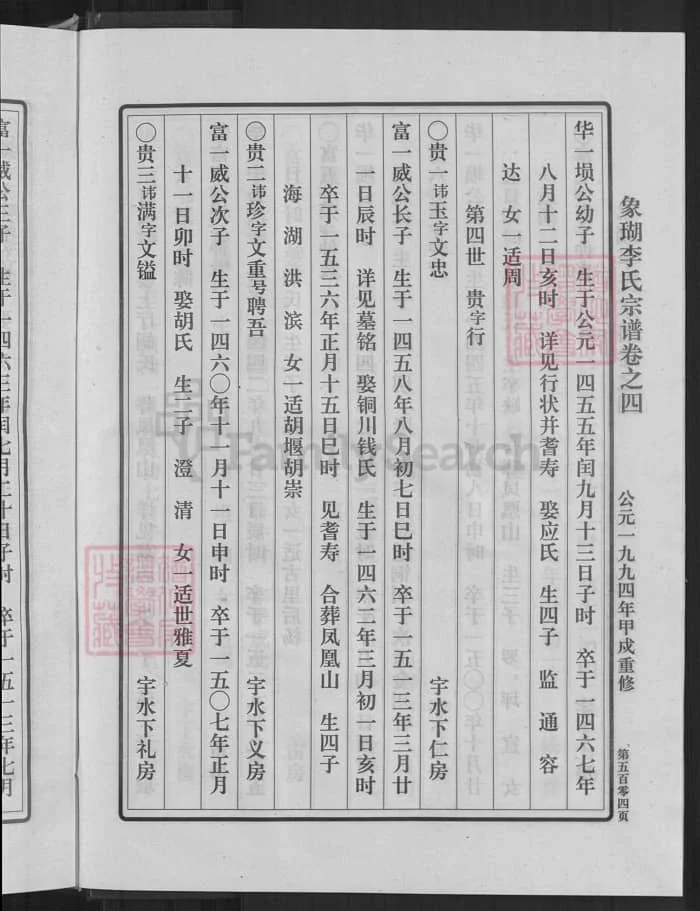 象瑚李氏宗谱卷之四 公元一九九四年甲戍重修 第五百零四页
华一埙公幼子 生于公元 四五五年闰九月十三日子时 卒于一四六七年
八月十二日亥时 详见行状并耆寿 娶应氏 生四子 监 通 容
达 女一适周
第四世 贵字行
〇贵一讳玉字文忠 宇水下仁房
富一威公长子 生于一四五八年八月初七日巳时 卒于一五一三年三月廿
一日辰时 详见墓铭 娶铜川钱氏 生于一四六二年三月初一日亥时
卒于一五三六年正月十五日巳时 见耆寿 合葬凤凰山 生四子
海 湖 洪 滨 女一适胡堰胡崇
〇贵二讳珍字文重号聘吾 宇水下义房
富一威公次子 生于一四六〇年十一月十一日申时 卒于一五〇七年正月
十一日卯时 娶胡氏 生二子 澄 清 女一适世雅夏
〇贵三讳满字文镒 宇水下礼房
富一威公三子 生于一四六三年闰七月二十日子时 卒于一五一三年七月
FamilySearch